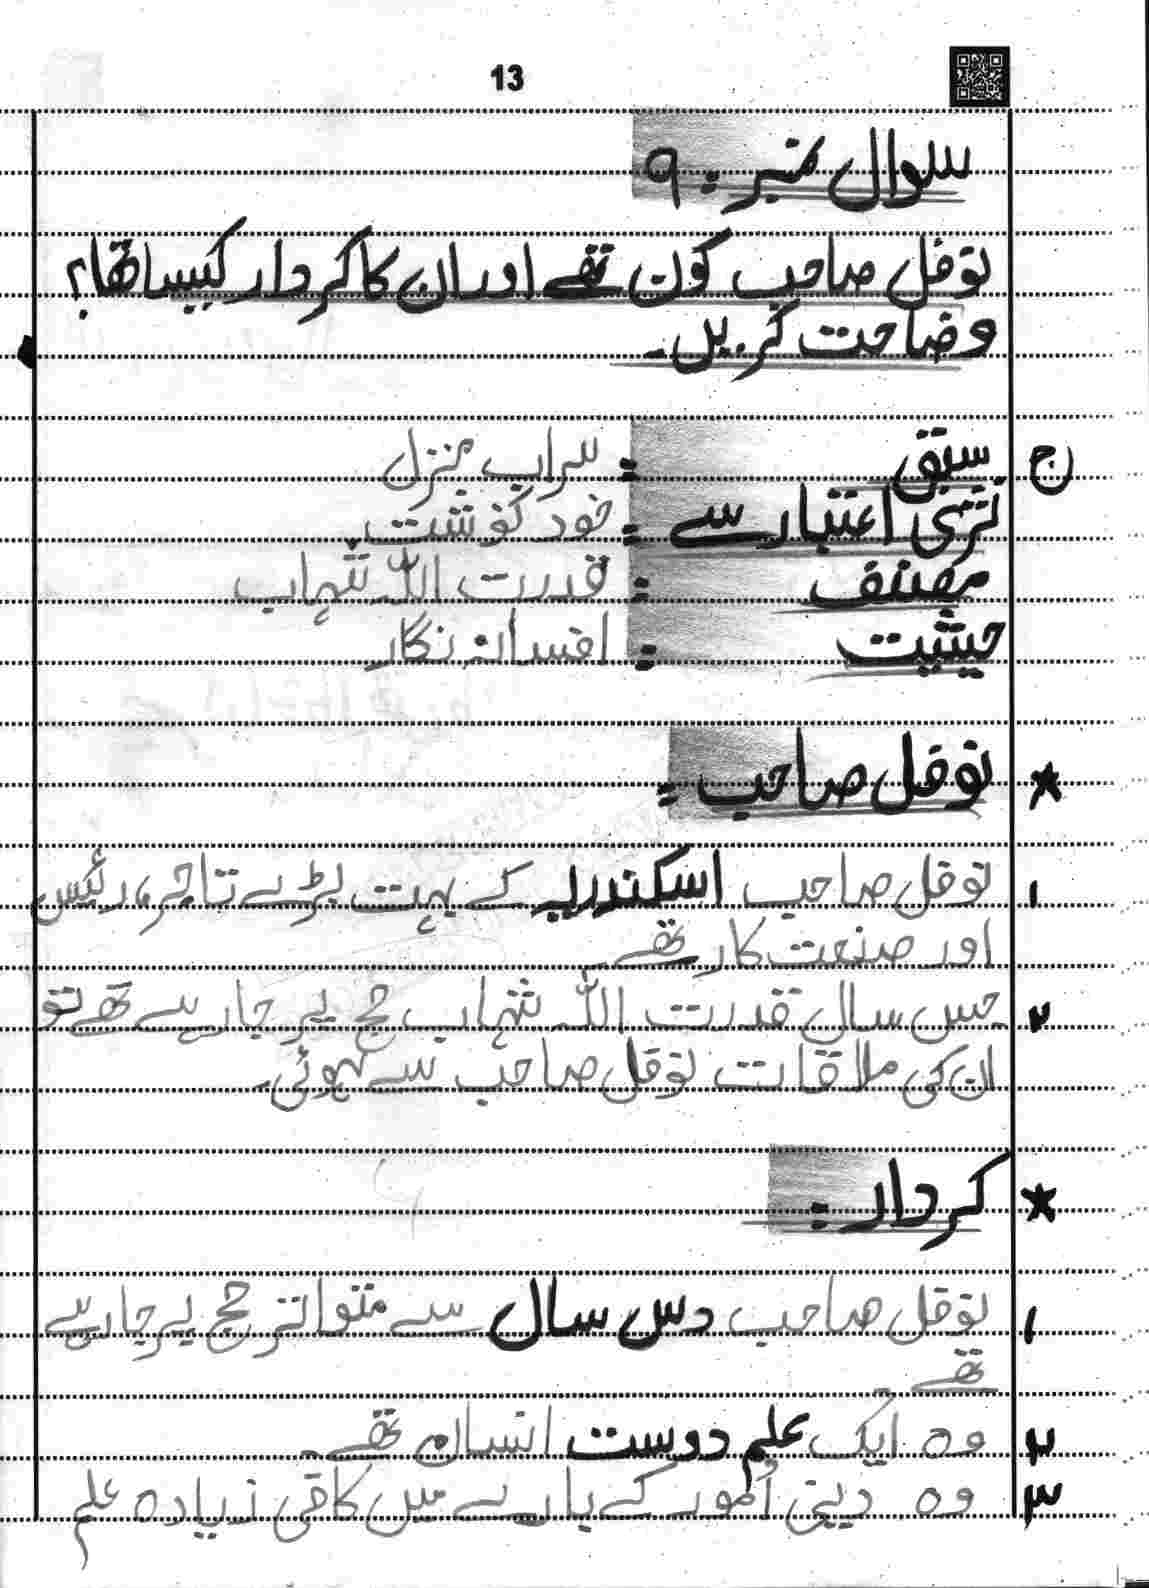 13
سوال نمبر : ۹
نوفل صاحب کون تھے اور ان کا کردار کیسا تھا؟
وضاحت کریں۔
ج سبق : سراب منزل
نثری اعتبار سے : خود نوشت
مصنف : قدرت اللہ شہاب
حیثیت : افسانہ نگار
★ نوفل صاحب :
۱ نوفل صاحب اسکندریہ کے بہت بڑے تاجر، رئیس
اور صنعت کار تھے۔
۲ جس سال قدرت اللہ شہاب حج پر جا رہے تھے تو
ان کی ملاقات نوفل صاحب سے ہوئی۔
★ کردار :
۱ نوفل صاحب دس سال سے متواتر حج پر جا رہے
تھے۔
۲ وہ ایک علم دوست انسان تھے۔
۳ وہ دینی اُمور کے بارے میں کافی زیادہ علم